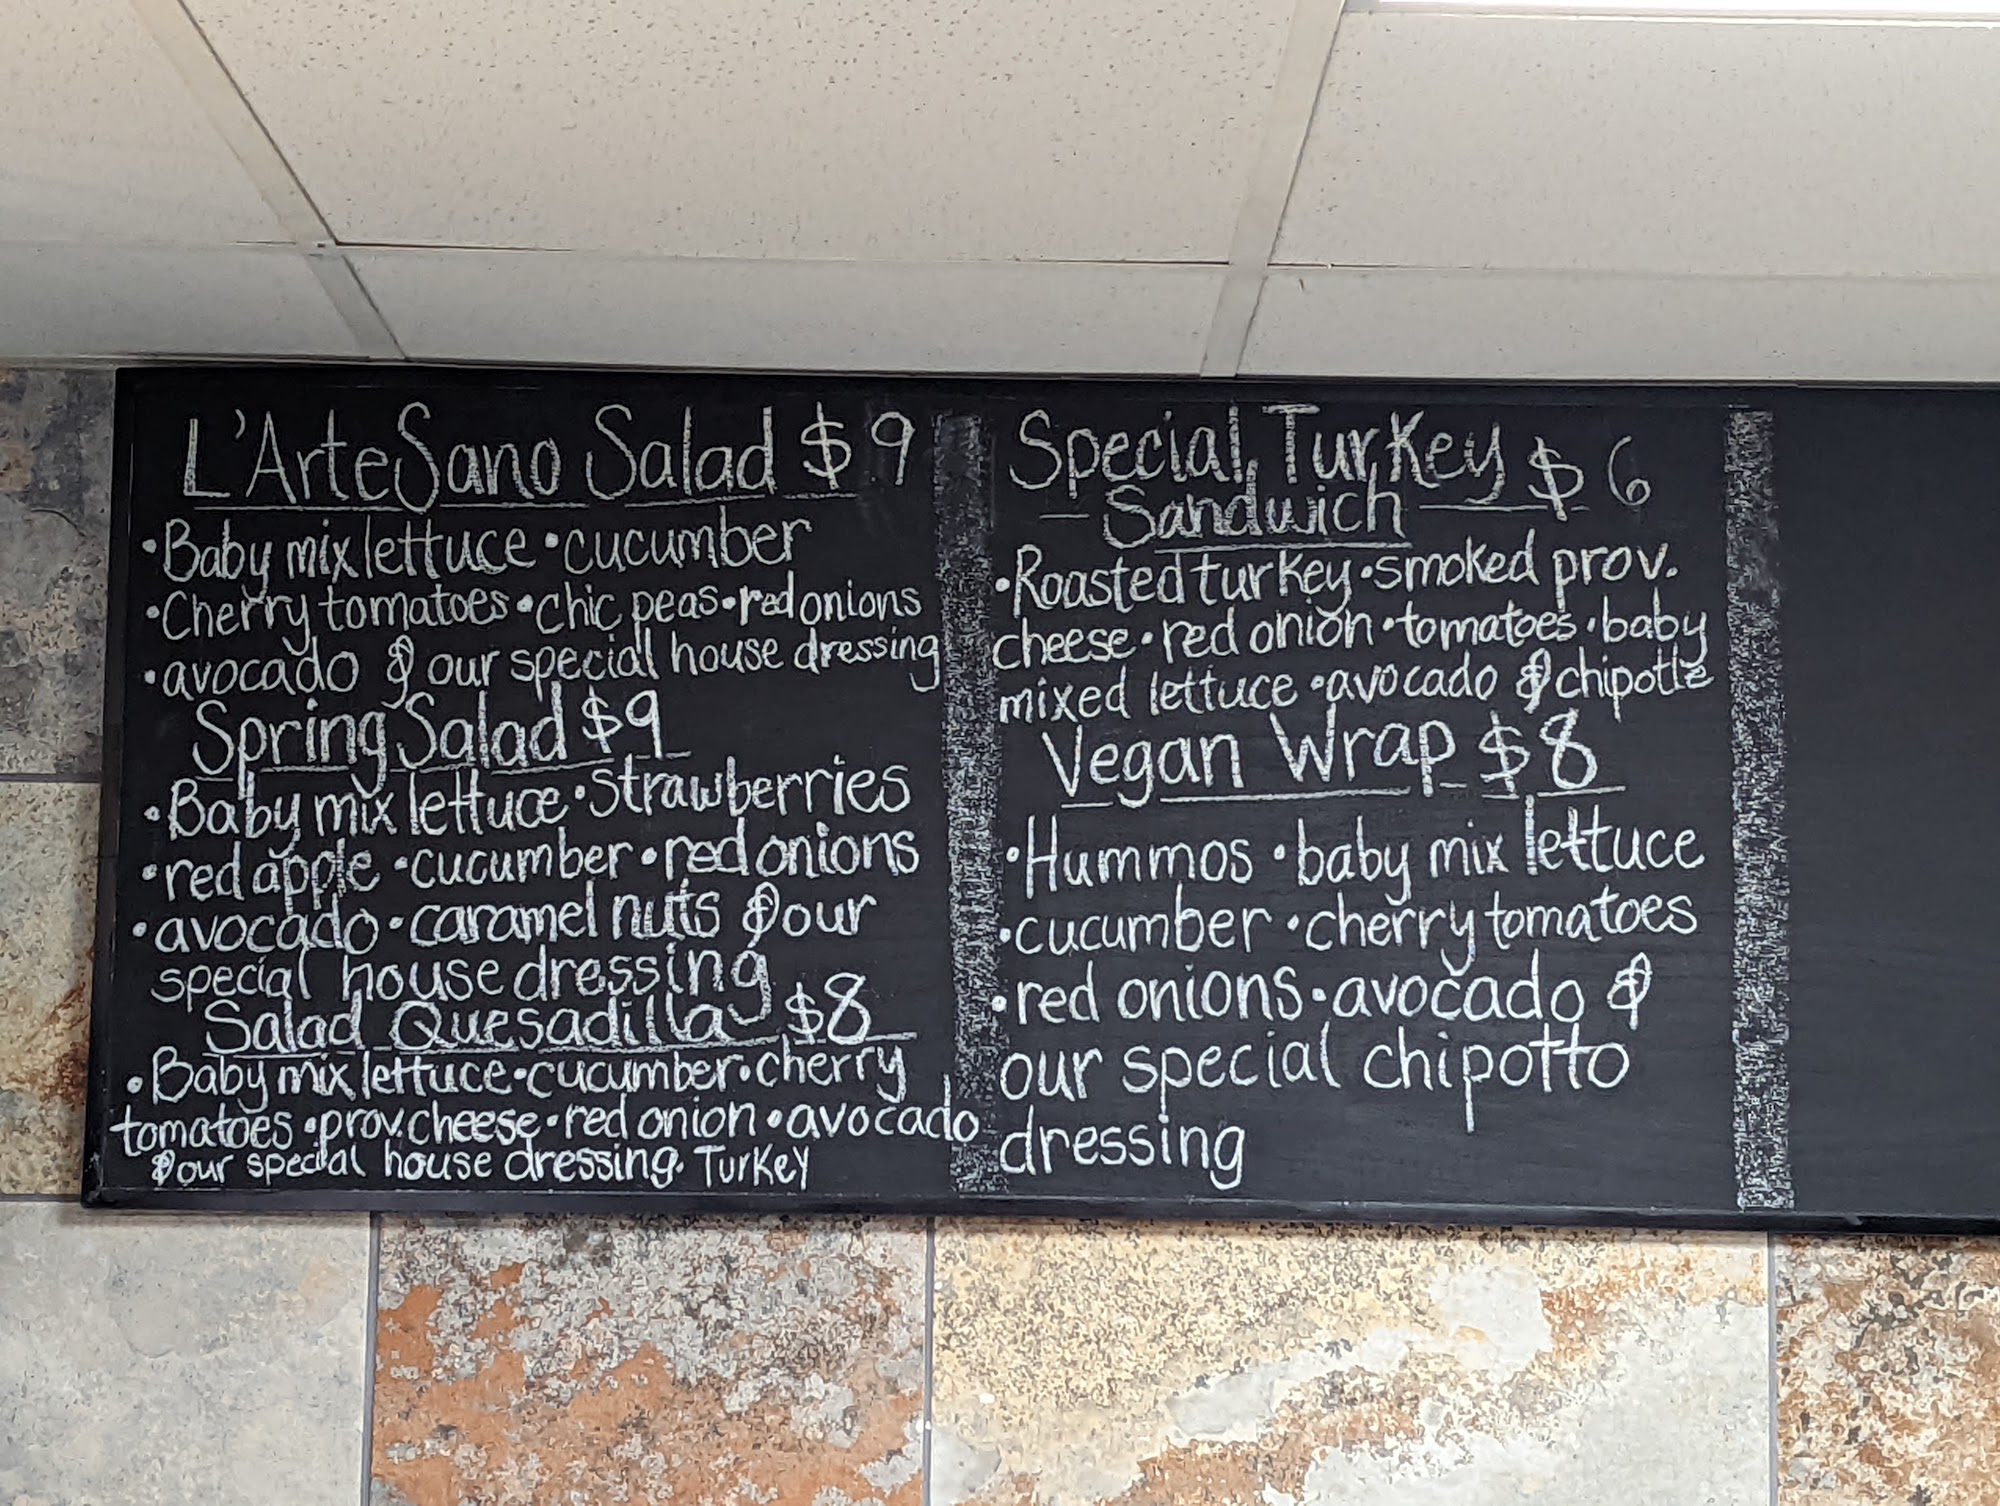 L'ArteSano Salad $9
•Baby mix lettuce •cucumber
•Cherry tomatoes •chic peas •red onions
•avocado & our special house dressing
Spring Salad $9
•Baby mix lettuce •strawberries
•red apple •cucumber •red onions
•avocado •caramel nuts & our
special house dressing
Salad Quesadilla $8
•Baby mix lettuce •cucumber •cherry
tomatoes •prov. cheese •red onion •avocado
& our special house dressing. Turkey
Special Turkey $6
Sandwich
•Roasted turkey •smoked prov.
cheese •red onion •tomatoes •baby
mixed lettuce •avocado & chipotle
Vegan Wrap $8
•Hummos •baby mix lettuce
•cucumber •cherry tomatoes
•red onions •avocado &
our special chipotto
dressing